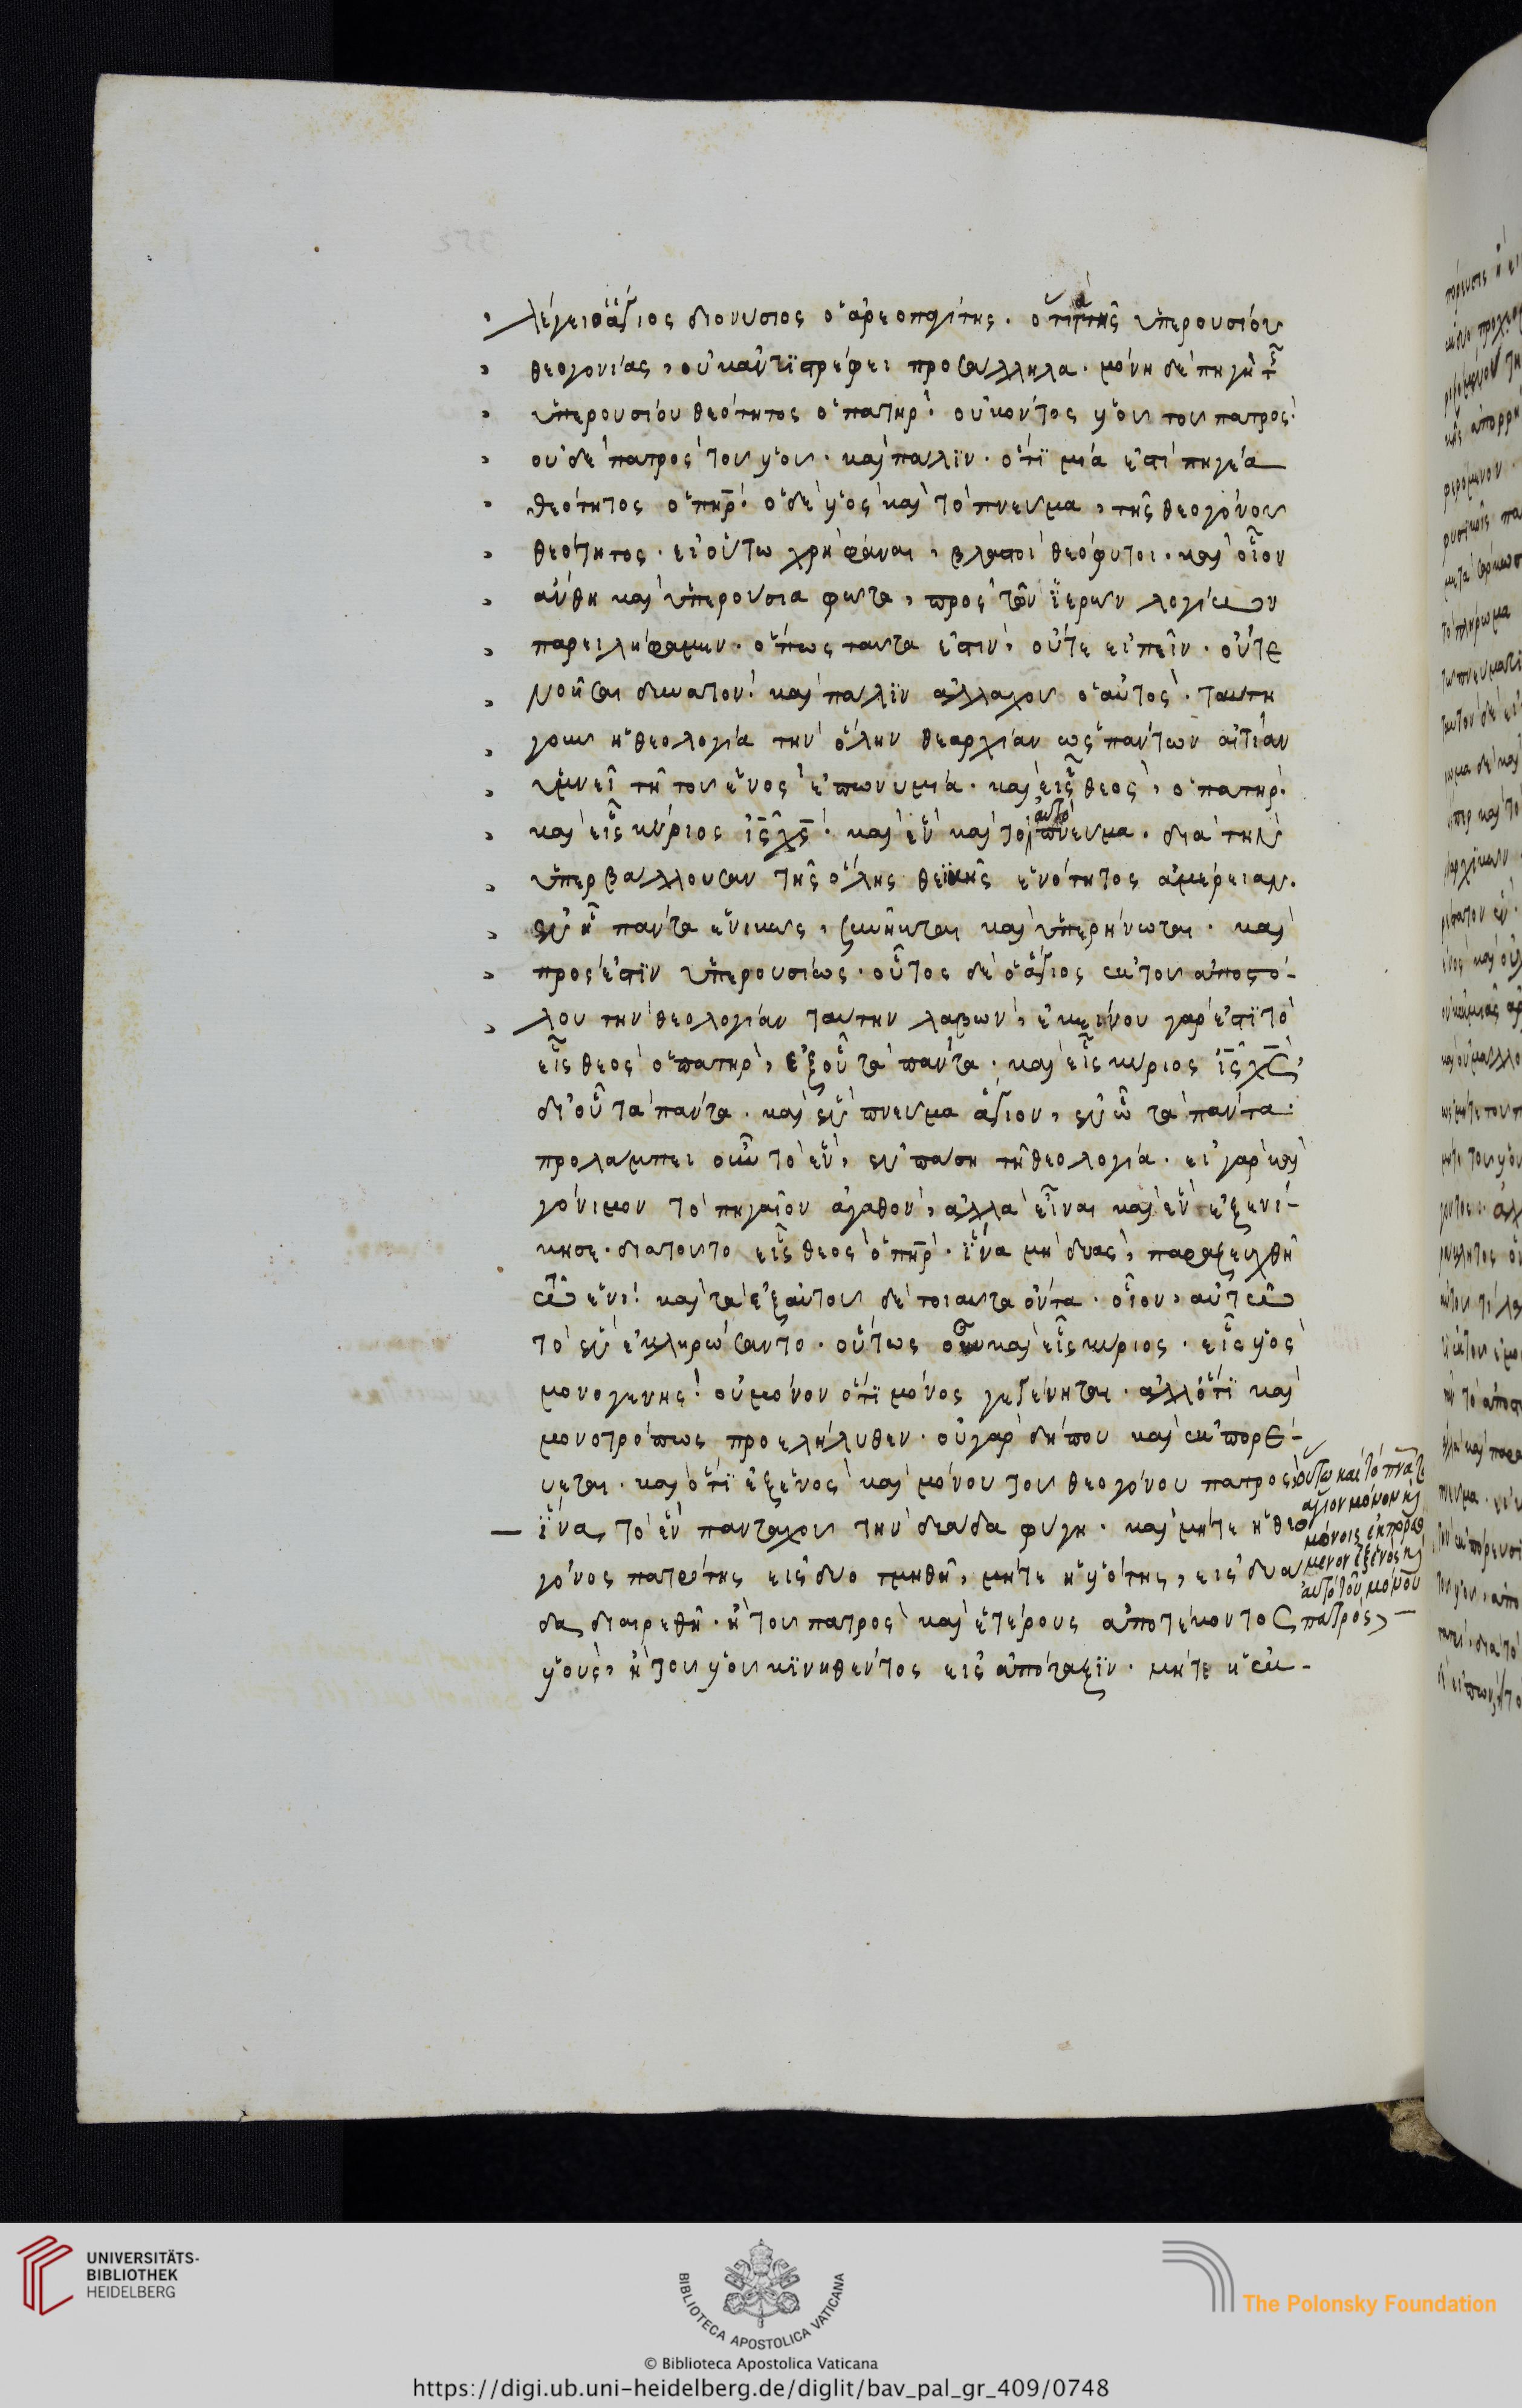 λέγει ὁ ἅγιος διονύσιος ὁ ἀρεοπαγίτης· ὅτι τὰ τῆς ὑπερουσίου
θεογονίας, οὐκ ἀντιστρέφει προς ἄλληλα· μόνη δὲ πηγὴ τῆς
ὑπερουσίου θεότητος ὁ πατήρ· οὐκ ὄντος υἱοῦ τοῦ πατρός·
οὐδὲ πατρὸς τοῦ υἱοῦ· καὶ πάλιν· ὅτι μία ἐστὶ πηγέα
θεότητος ὁ πηρ· ὁ δὲ υἱὸς καὶ τὸ πνεῦμα, τῆς θεογόνου
θεότητος· εἰ οὕτω χρὴ φάναι, βλαστοὶ θεόφυτοι· καὶ οἷον
ἄνθη καὶ ὑπερούσια φῶτα, προς τῶν ἱερῶν λογίων
παρειλήφαμεν· ὅπως ταῦτα ἐστὶν, οὔτε εἰπεῖν· οὔτε
νοῆσαι δυνατόν· καὶ πάλιν ἀλλαχοῦ ὁ αὐτός· ταύτη
γοῦν ἡ θεολογία τὴν ὅλην θεαρχίαν ὡς πάντων αἰτίαν
ὑμνεῖ τῇ τοῦ ἑνὸς ἐπωνυμία· καὶ εἷς θεὸς, ὁ πατήρ·
καὶ εἷς κύριος ις χς· καὶ ἓν καὶ τὸ αὐτὸ πνεῦμα· διὰ τὴν
ὑπερβάλλουσαν τῆς ὅλης θεϊκῆς ἑνότητος ἀμέρειαν·
ἐν ᾗ πάντα ἑνικῶς, συνῆκται καὶ ὑπερήνωται· καὶ
πρόσεστιν ὑπερουσίως· οὗτος δὲ ὁ ἅγιος ἐκ τοῦ ἀποστό-
λου τὴν θεολογίαν ταύτην λαβὼν, ἐκείνου γάρ ἐστι τὸ
εἷς θεὸς ὁ πατὴρ, ἐξ οὗ τὰ πάντα· καὶ εἷς κύριος ις χς,
δι' οὗ τὰ πάντα· καὶ ἓν πνεῦμα ἅγιον, ἐν ᾧ τὰ πάντα·
προλάμπει οὖν τὸ ἓν, ἐν πάση τῇ θεολογία· εἰ γὰρ καὶ
γόνιμον τὸ πηγαῖον ἀγαθὸν, ἀλλὰ εἶναι καὶ ἓν ἐξενί-
κησε· διατοῦτο εἷς θεὸς ὁ πηρ· ἵνα μὴ δυὰς, παραζευχθῆ
τῶ ἑνί· καὶ τὰ ἐξ αὐτοῦ δὲ τοιαῦτα ὄντα· οἷον, αὐτῶ
τὸ ἓν ἐκληρώσαντο· οὕτως οὖν καὶ εἷς κύριος· εἷς υἱὸς
μονογενής· οὐ μόνον ὅτι μόνος γεγένηται· ἀλλ' ὅτι καὶ
μονοτρόπως προελήλυθεν· οὐ γὰρ δήπου καὶ ἐκπορε-
ύεται· καὶ ὅτι ἐξ ἑνὸς καὶ μόνου τοῦ θεογόνου πατρός·
ἵνα τὸ ἓν πανταχοῦ τὴν δυάδα φύγη· καὶ μήτε ἡ θεο
γόνος πατρότης εἰς δύο τμηθῆ, μήτε ἡ υἱότης, εἰς δυά
δα διαιρεθῆ· ἢ τοῦ πατρὸς καὶ ἑτέρους ἀποτεκόντος
υἱοὺς, ἢ τοῦ υἱοῦ κινηθέντος εἰς ἀπόταξιν· μήτε ἡ ἐκ-
οὕτω καὶ τὸ πνα τὸ
ἅγιον μόνον καὶ
μόνως ἐκπορευό
μενον ἐξ ἑνὸς καὶ
αὐτὸ τοῦ μόνου
πατρὸς,
UNIVERSITÄTS-
BIBLIOTHEK
HEIDELBERG
BIBLIOTECA APOSTOLICA VATICANA
The Polonsky Foundation
© Biblioteca Apostolica Vaticana
https://digi.ub.uni-heidelberg.de/diglit/bav_pal_gr_409/0748